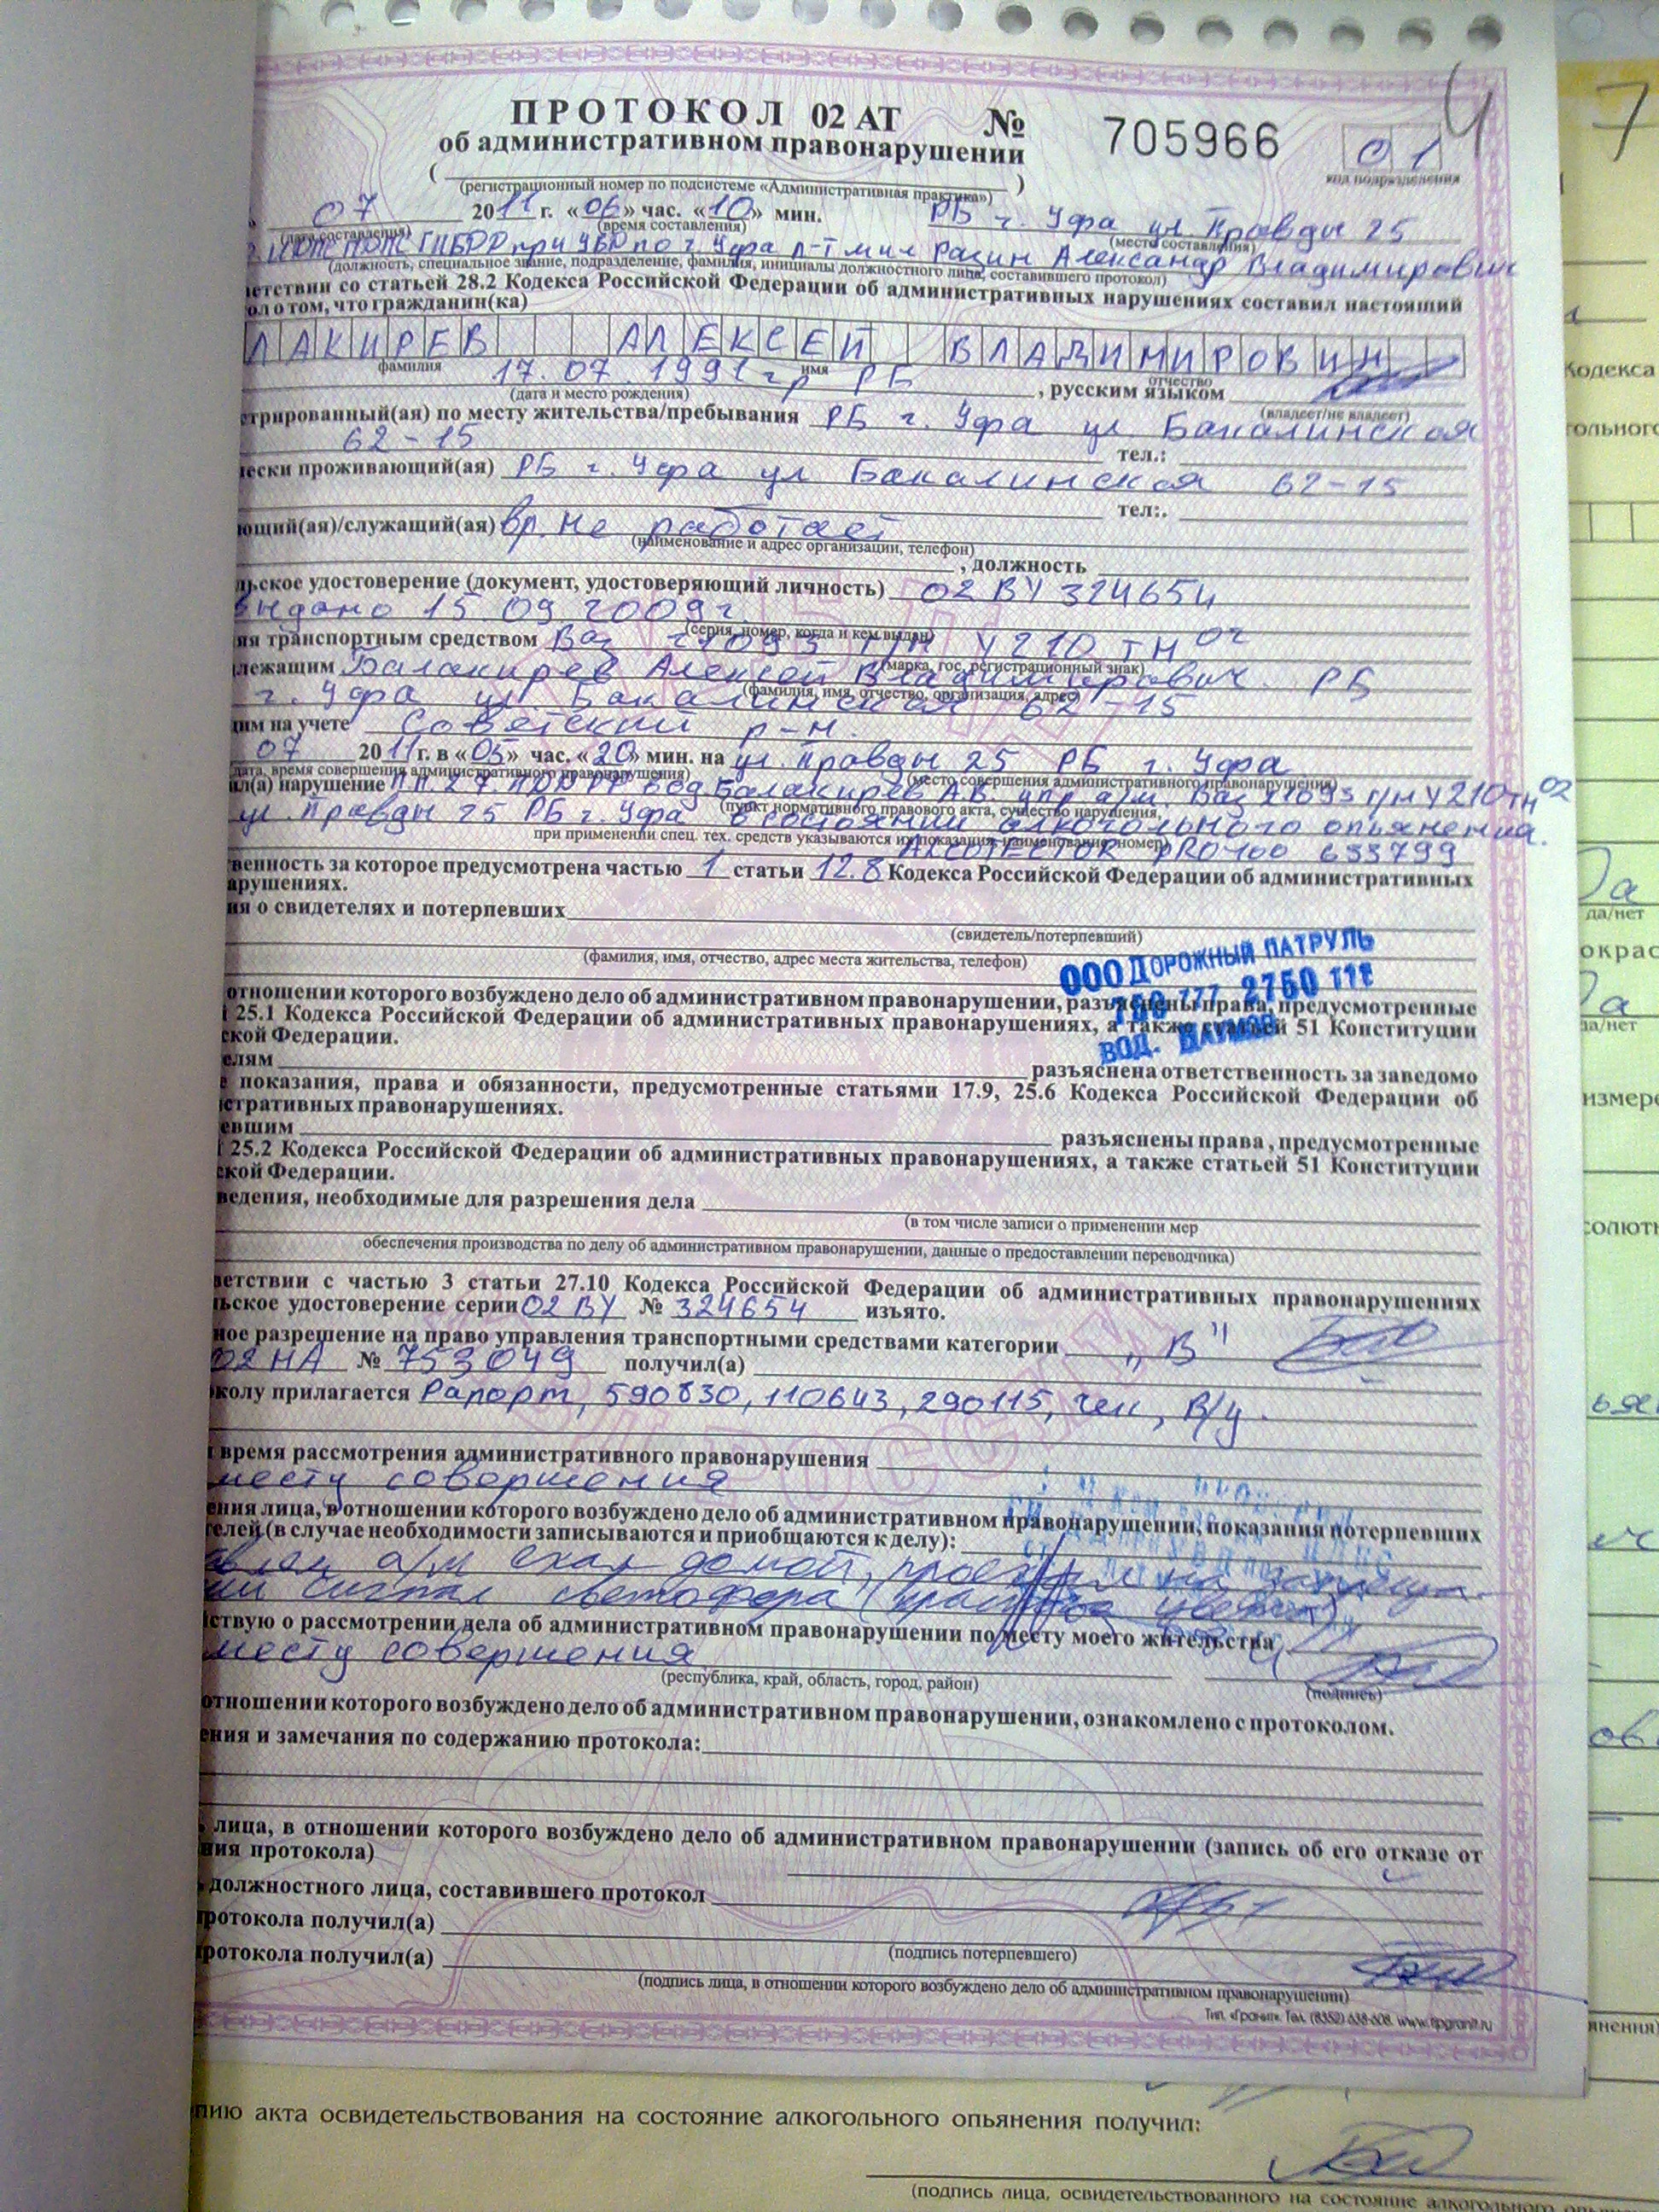 ПРОТОКОЛ 02 АТ № 705966 01
об административном правонарушении
код подразделения
( )
(регистрационный номер по подсистеме «Административная практика»)
07 2011 г. «06» час. «10» мин. РБ г. Уфа ул. Правды 25
(дата составления) (время составления) (место составления)
ГИБДД при УВД по г. Уфа л-т мил Расин Александр Владимирович
(должность, специальное звание, подразделение, фамилия, инициалы должностного лица, составившего протокол)
етствии со статьей 28.2 Кодекса Российской Федерации об административных нарушениях составил настоящий
ол о том, что гражданин(ка)
ЛАКИРЕВ АЛЕКСЕЙ ВЛАДИМИРОВИЧ
фамилия имя отчество
17.07 1991 гр РБ , русским языком
(дата и место рождения) (владеет/не владеет)
стрированный(ая) по месту жительства/пребывания РБ г. Уфа ул Бакалинская
62-15 тел.:
чески проживающий(ая) РБ г. Уфа ул Бакалинская 62-15
тел:.
ющий(ая)/служащий(ая) вр. не работает
(наименование и адрес организации, телефон)
, должность
льское удостоверение (документ, удостоверяющий личность) 02 ВУ 324654
выдано 15 09 2009г.
(серия, номер, когда и кем выдан)
яя транспортным средством Ваз 21093 г/н У 210 ТН 02
(марка, гос. регистрационный знак)
лежащим Балакирев Алексей Владимирович РБ
(фамилия, имя, отчество, организация, адрес)
г. Уфа ул. Бакалинская 62-15
щим на учете Советский р-н.
07 2011 г. в «05» час. «20» мин. на ул. Правды 25 РБ г. Уфа
дата, время совершения административного правонарушения) (место совершения административного правонарушения)
ил(а) нарушение П.П. 2.7. ПДД РФ вод Балакирев А.В. упр а/м. Ваз 21093 г/н У210ТН 02
(пункт нормативного правового акта, существо нарушения,
ул. Правды 25 РБ г. Уфа в состоянии алкогольного опьянения.
при применении спец. тех. средств указываются их показания, наименование, номер)
ALCOTECTOR PRO-100 633799
твенность за которое предусмотрена частью 1 статьи 12.8 Кодекса Российской Федерации об административных
арушениях.
ия о свидетелях и потерпевших
(свидетель/потерпевший)
(фамилия, имя, отчество, адрес места жительства, телефон)
ООО ДОРОЖНЫЙ ПАТРУЛЬ
ВОД.
отношении которого возбуждено дело об административном правонарушении, разъяснены права, предусмотренные
25.1 Кодекса Российской Федерации об административных правонарушениях, а также статьей 51 Конституции
ской Федерации.
елям разъяснена ответственность за заведомо
е показания, права и обязанности, предусмотренные статьями 17.9, 25.6 Кодекса Российской Федерации об
стративных правонарушениях.
евшим разъяснены права, предусмотренные
25.2 Кодекса Российской Федерации об административных правонарушениях, а также статьей 51 Конституции
ской Федерации.
ведения, необходимые для разрешения дела
(в том числе записи о применении мер
обеспечения производства по делу об административном правонарушении, данные о предоставлении переводчика)
ветствии с частью 3 статьи 27.10 Кодекса Российской Федерации об административных правонарушениях
льское удостоверение серии 02 ВУ № 324654 изъято.
ное разрешение на право управления транспортными средствами категории „В"
02 НА № 753049 получил(а)
колу прилагается Рапорт, 590830, 110643, 290115, чек, В/у.
время рассмотрения административного правонарушения
месту совершения
ения лица, в отношении которого возбуждено дело об административном правонарушении, показания потерпевших
телей (в случае необходимости записываются и приобщаются к делу):
а/м ехал домой, проехал на
сигнал светофора
йствую о рассмотрении дела об административном правонарушении по месту моего жительства
месту совершения
(республика, край, область, город, район) (подпись)
отношении которого возбуждено дело об административном правонарушении, ознакомлено с протоколом.
ения и замечания по содержанию протокола:
лица, в отношении которого возбуждено дело об административном правонарушении (запись об его отказе от
ния протокола)
должностного лица, составившего протокол
ротокола получил(а)
(подпись потерпевшего)
ротокола получил(а)
(подпись лица, в отношении которого возбуждено дело об административном правонарушении)
Тип. «Гранит». Тел. (8352) 638-608. www.tipgranit.ru
пию акта освидетельствования на состояние алкогольного опьянения получил:
(подпись лица, освидетельствованного на состояние алкогольного
7
Кодекса
гольного
да/нет
окрас
да/нет
измере
солютн